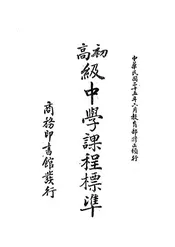 中華民國二十五年六月教育部修正頒行
初高級中學課程標準
商務印書館發行